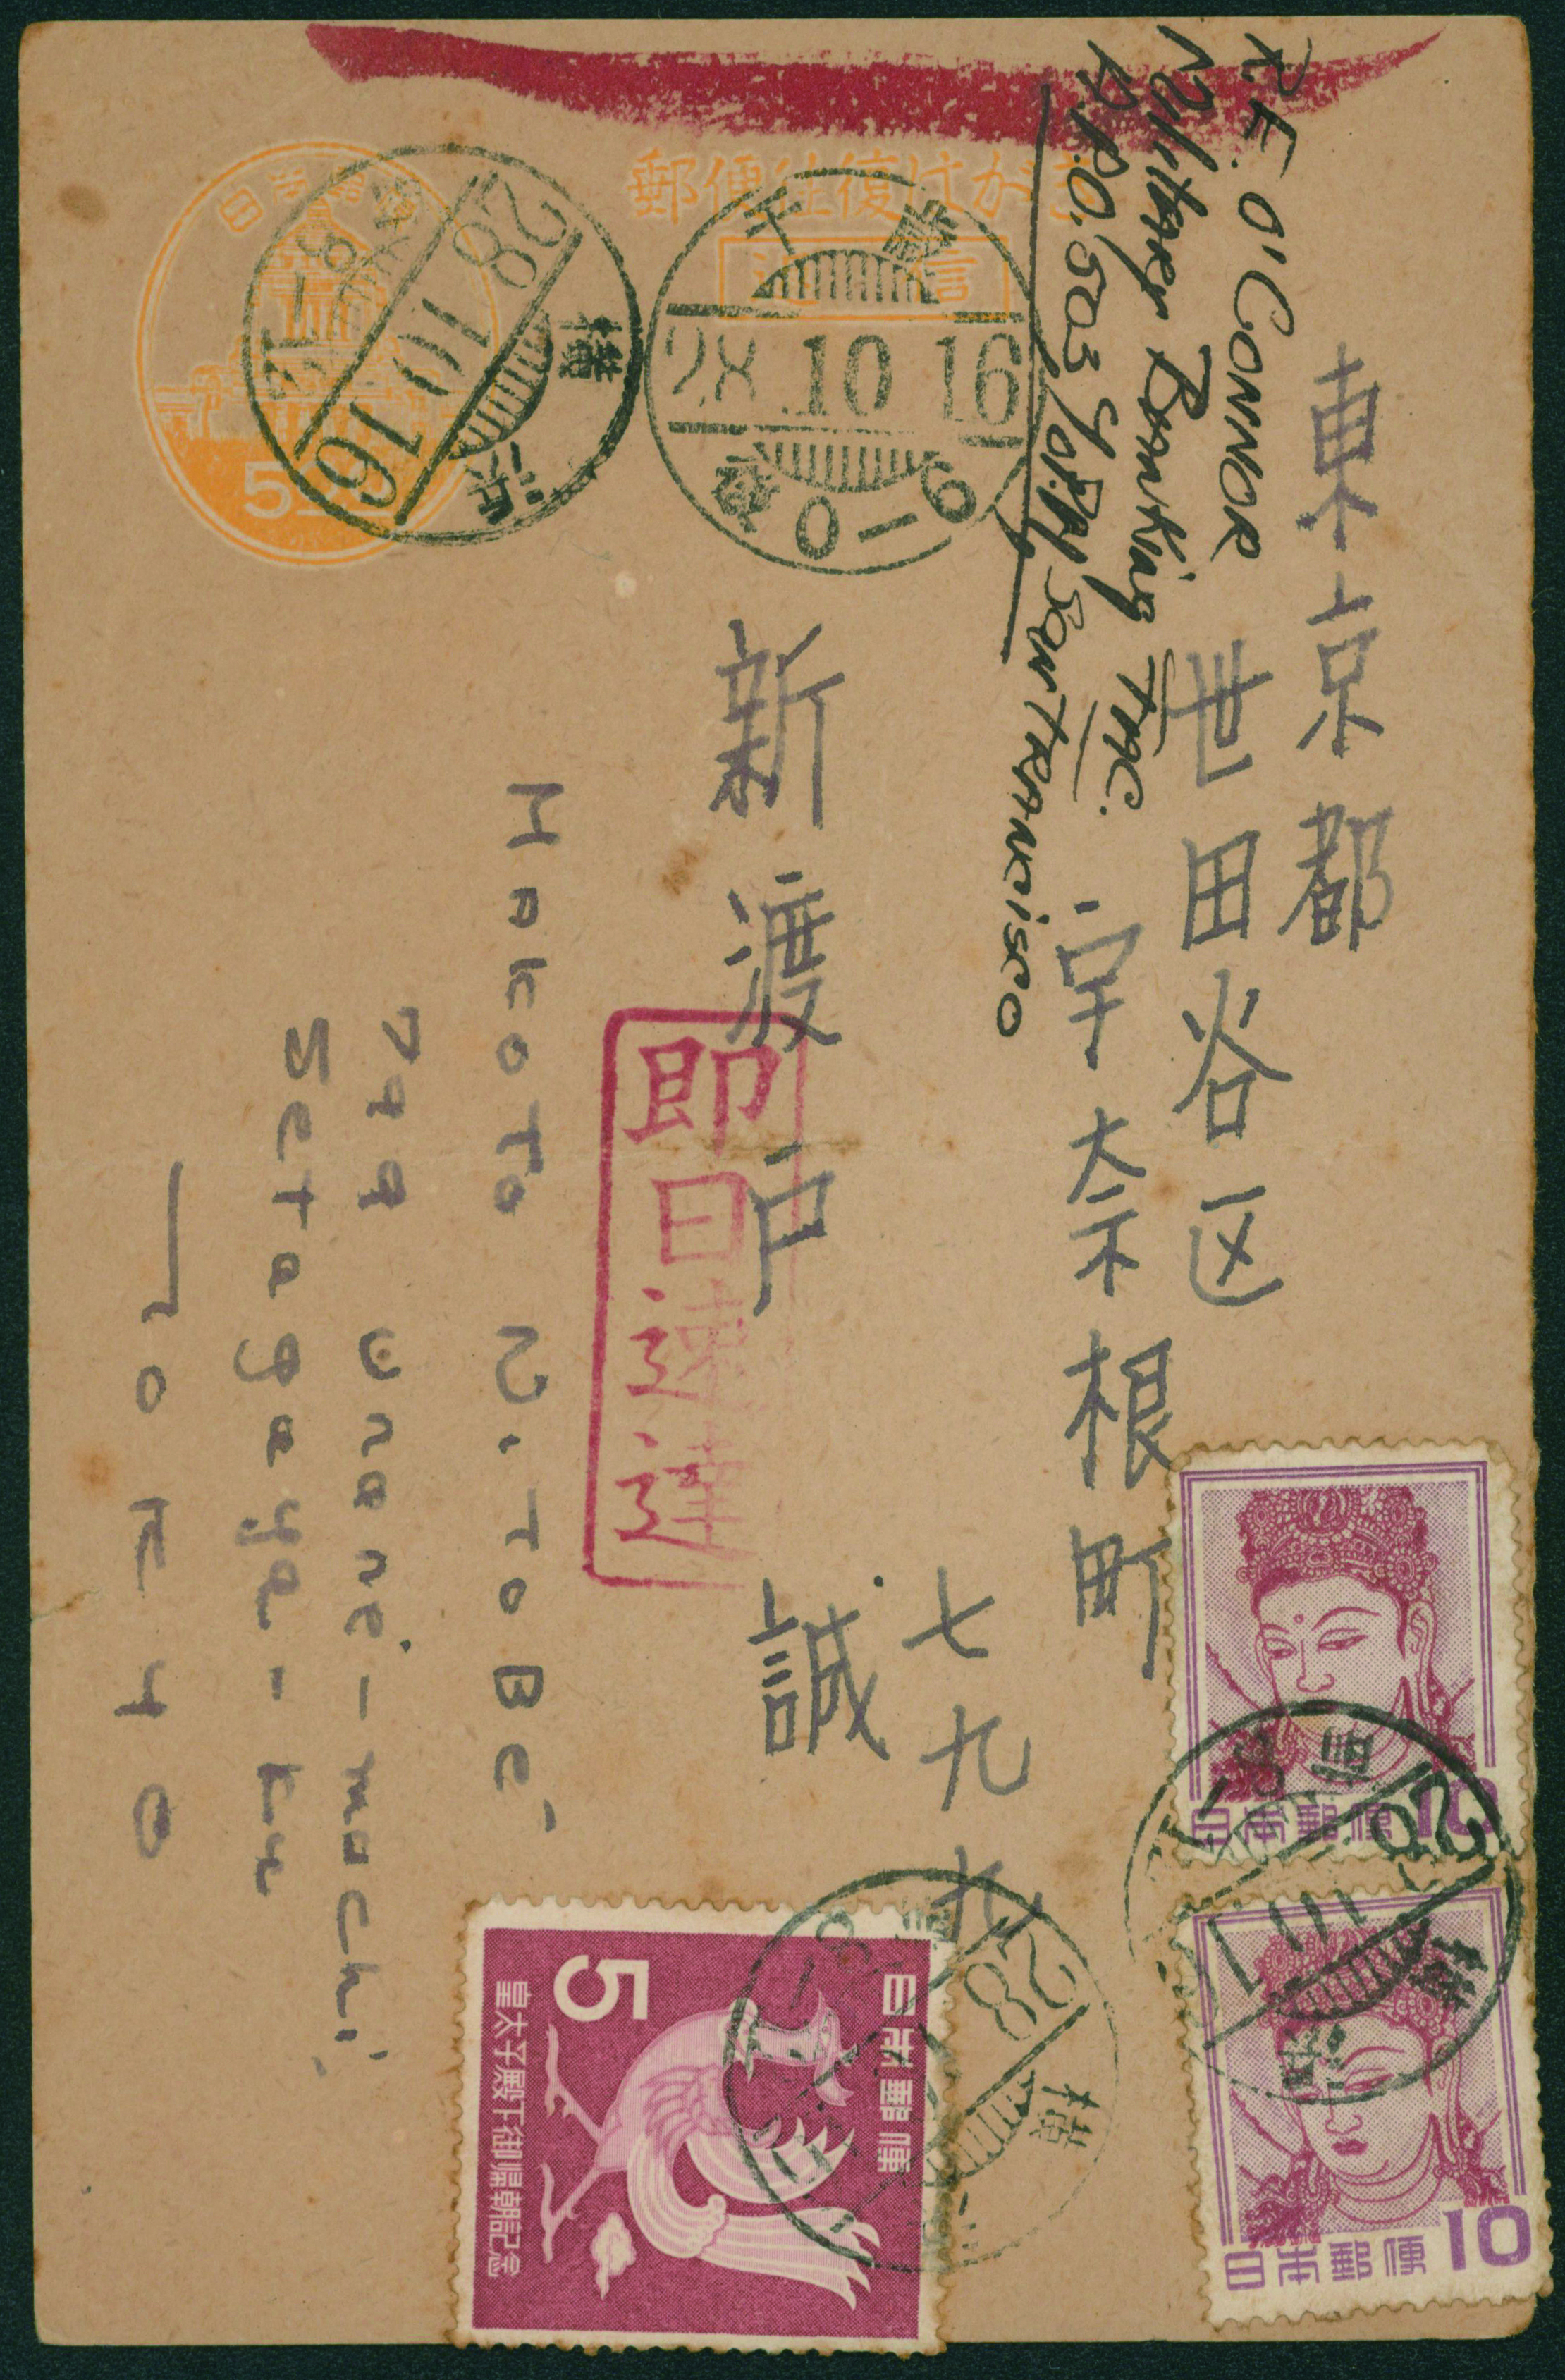 郵便往復はがき
返信
日本郵便
5
千歳
28.10.16
后0-6
横浜
28.10.16
R.F. O'CONNOR
Military Banking FAC.
A.P.O. 503 % P.M. SAN FRANCISCO
東京都
世田谷区
宇奈根町
七九九
新渡戸 誠
即日速達
MAKOTO NITOBE
799 Unane-machi
Setagaya-ku
TOKYO
日本郵便 10
日本郵便 10
日本郵便
5
皇太子殿下御帰朝記念
横
28